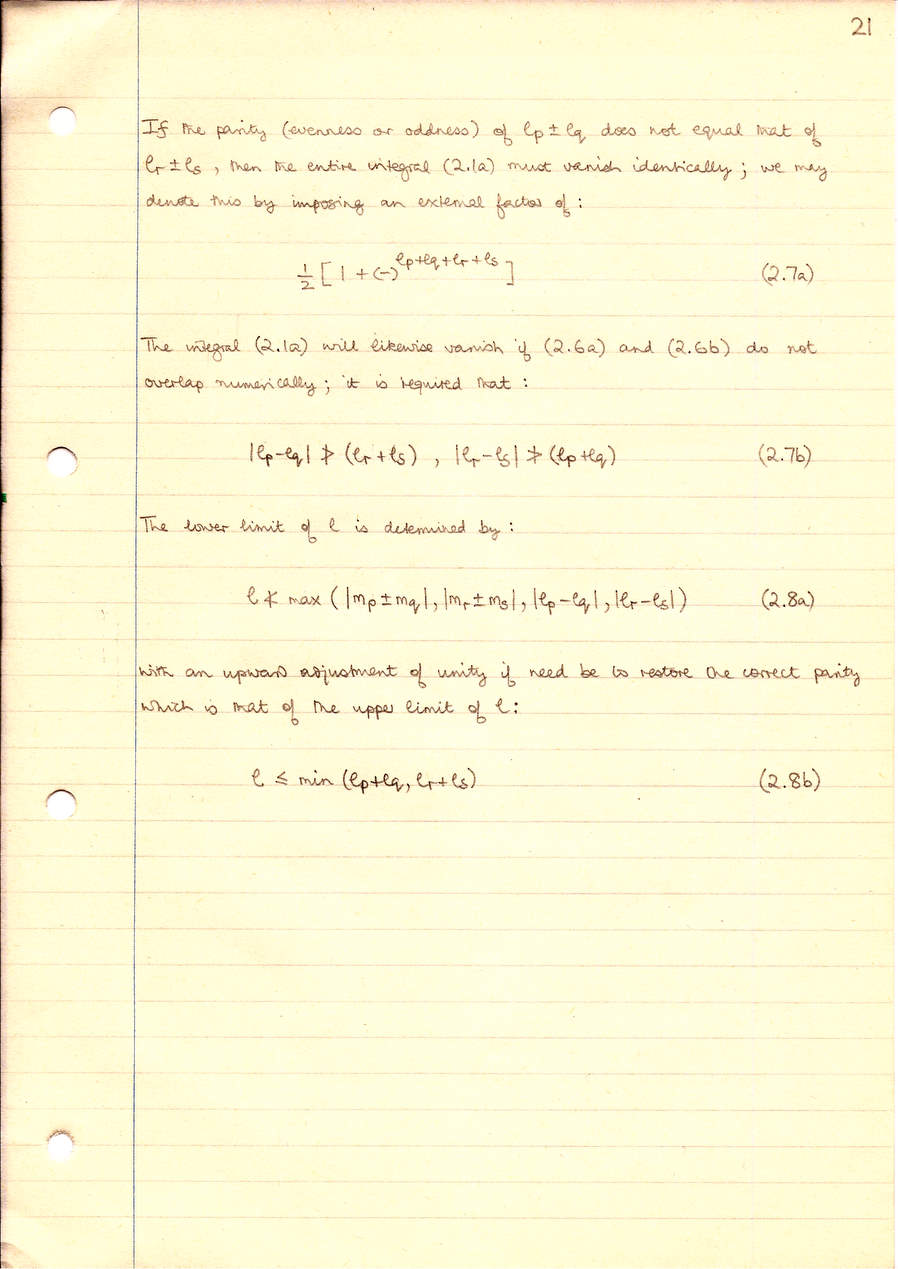 21
If the parity (evenness or oddness) of ℓp ± ℓq does not equal that of
ℓr ± ℓs , then the entire integral (2.1a) must vanish identically ; we may
denote this by imposing an external factor of :
½ [ 1 + (-)^{ℓp+ℓq+ℓr+ℓs} ] (2.7a)
The integral (2.1a) will likewise vanish if (2.6a) and (2.6b) do not
overlap numerically ; it is required that :
|ℓp-ℓq| ≯ (ℓr+ℓs) , |ℓr-ℓs| ≯ (ℓp+ℓq) (2.7b)
The lower limit of ℓ is determined by :
ℓ ≮ max ( |mp ± mq|, |mr ± ms|, |ℓp-ℓq|, |ℓr-ℓs| ) (2.8a)
with an upward adjustment of unity if need be to restore the correct parity
which is that of the upper limit of ℓ :
ℓ ≤ min (ℓp+ℓq, ℓr+ℓs) (2.8b)